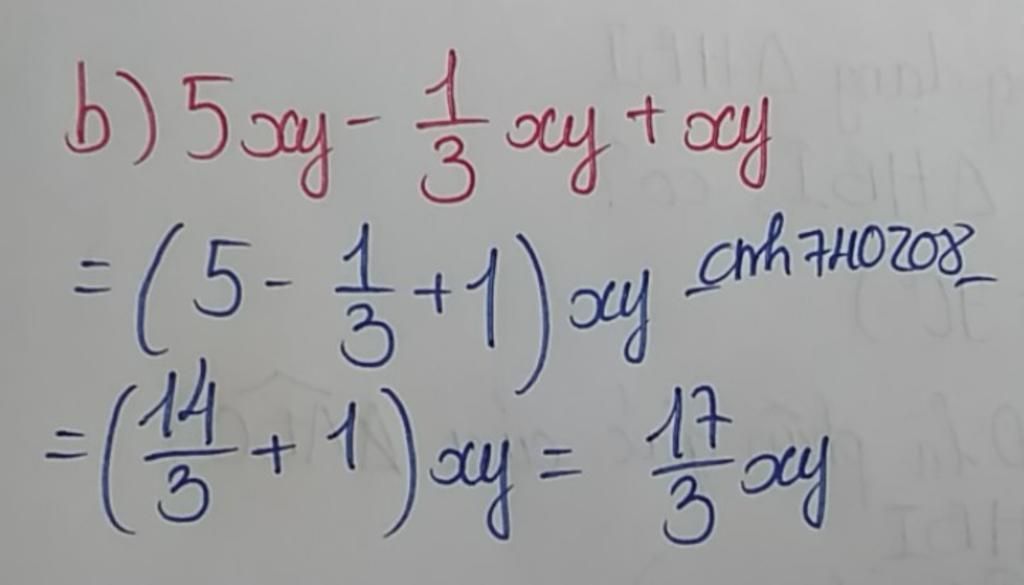 b) 5xy - 1/3 xy + xy
= (5 - 1/3 + 1) xy cmh740208
= (14/3 + 1) xy = 17/3 xy